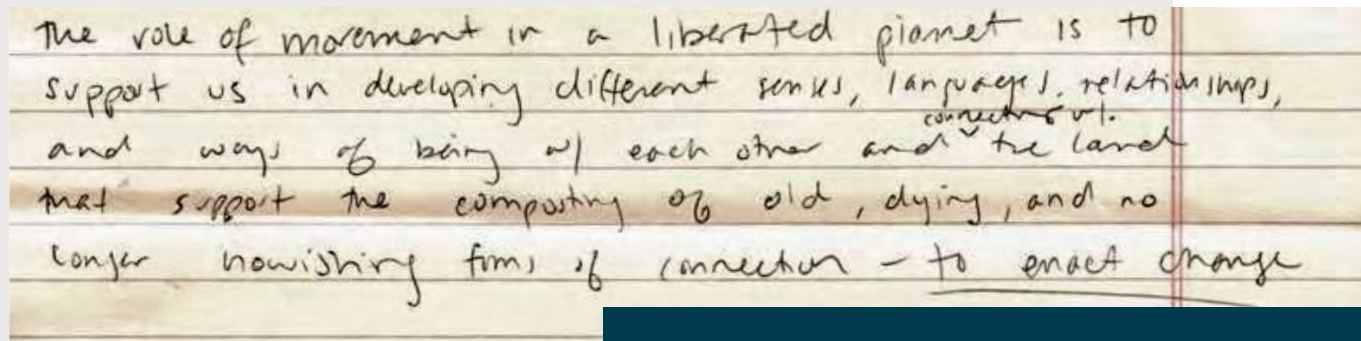 the role of movement in a liberated planet is to
support us in developing different senses, languages, relationships,
and ways of being w/ each other and connecting w/. the land
that support the composting of old, dying, and no
longer nourishing forms of connection - to enact change